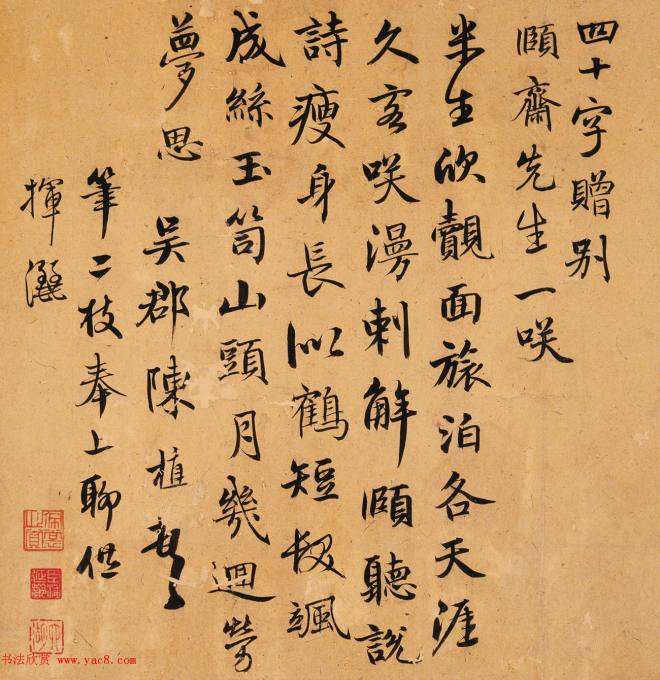 四十字贈别
頤齋先生一咲
半生欣覿面旅泊各天涯
久客咲漫刺解頤聽說
詩瘦身長似鶴短髮颯
成絲玉笥山頭月幾迴勞
夢思 吳郡陳植
筆二枝奉上聊供
揮灑
书法欣赏 www.yac8.com